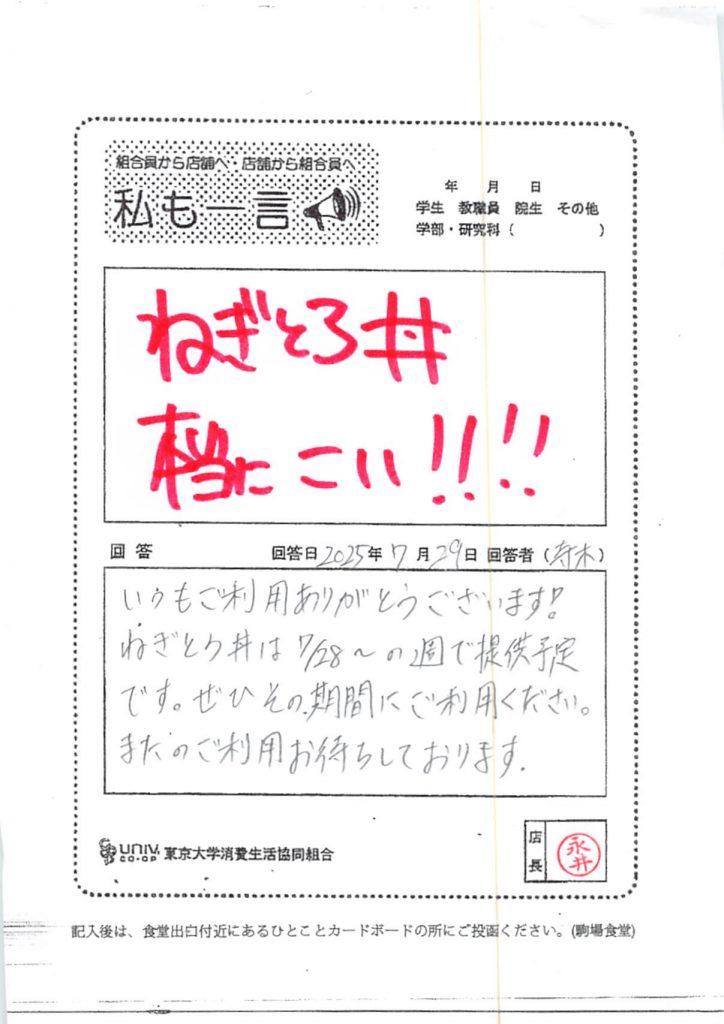 組合員から店舗へ・店舗から組合員へ
私も一言
年 月 日
学生 教職員 院生 その他
学部・研究科 ( )
ねぎとろ丼
本当にこい!!!!
回答 回答日2025年7月29日 回答者 (寺木)
いつもご利用ありがとうございます!
ねぎとろ丼は7/28〜の週で提供予定
です。ぜひその期間にご利用ください。
またのご利用お待ちしております。
UNIV. CO-OP 東京大学消費生活協同組合
店長 永井
記入後は、食堂出口付近にあるひとことカードボードの所にご投函ください。(駒場食堂)